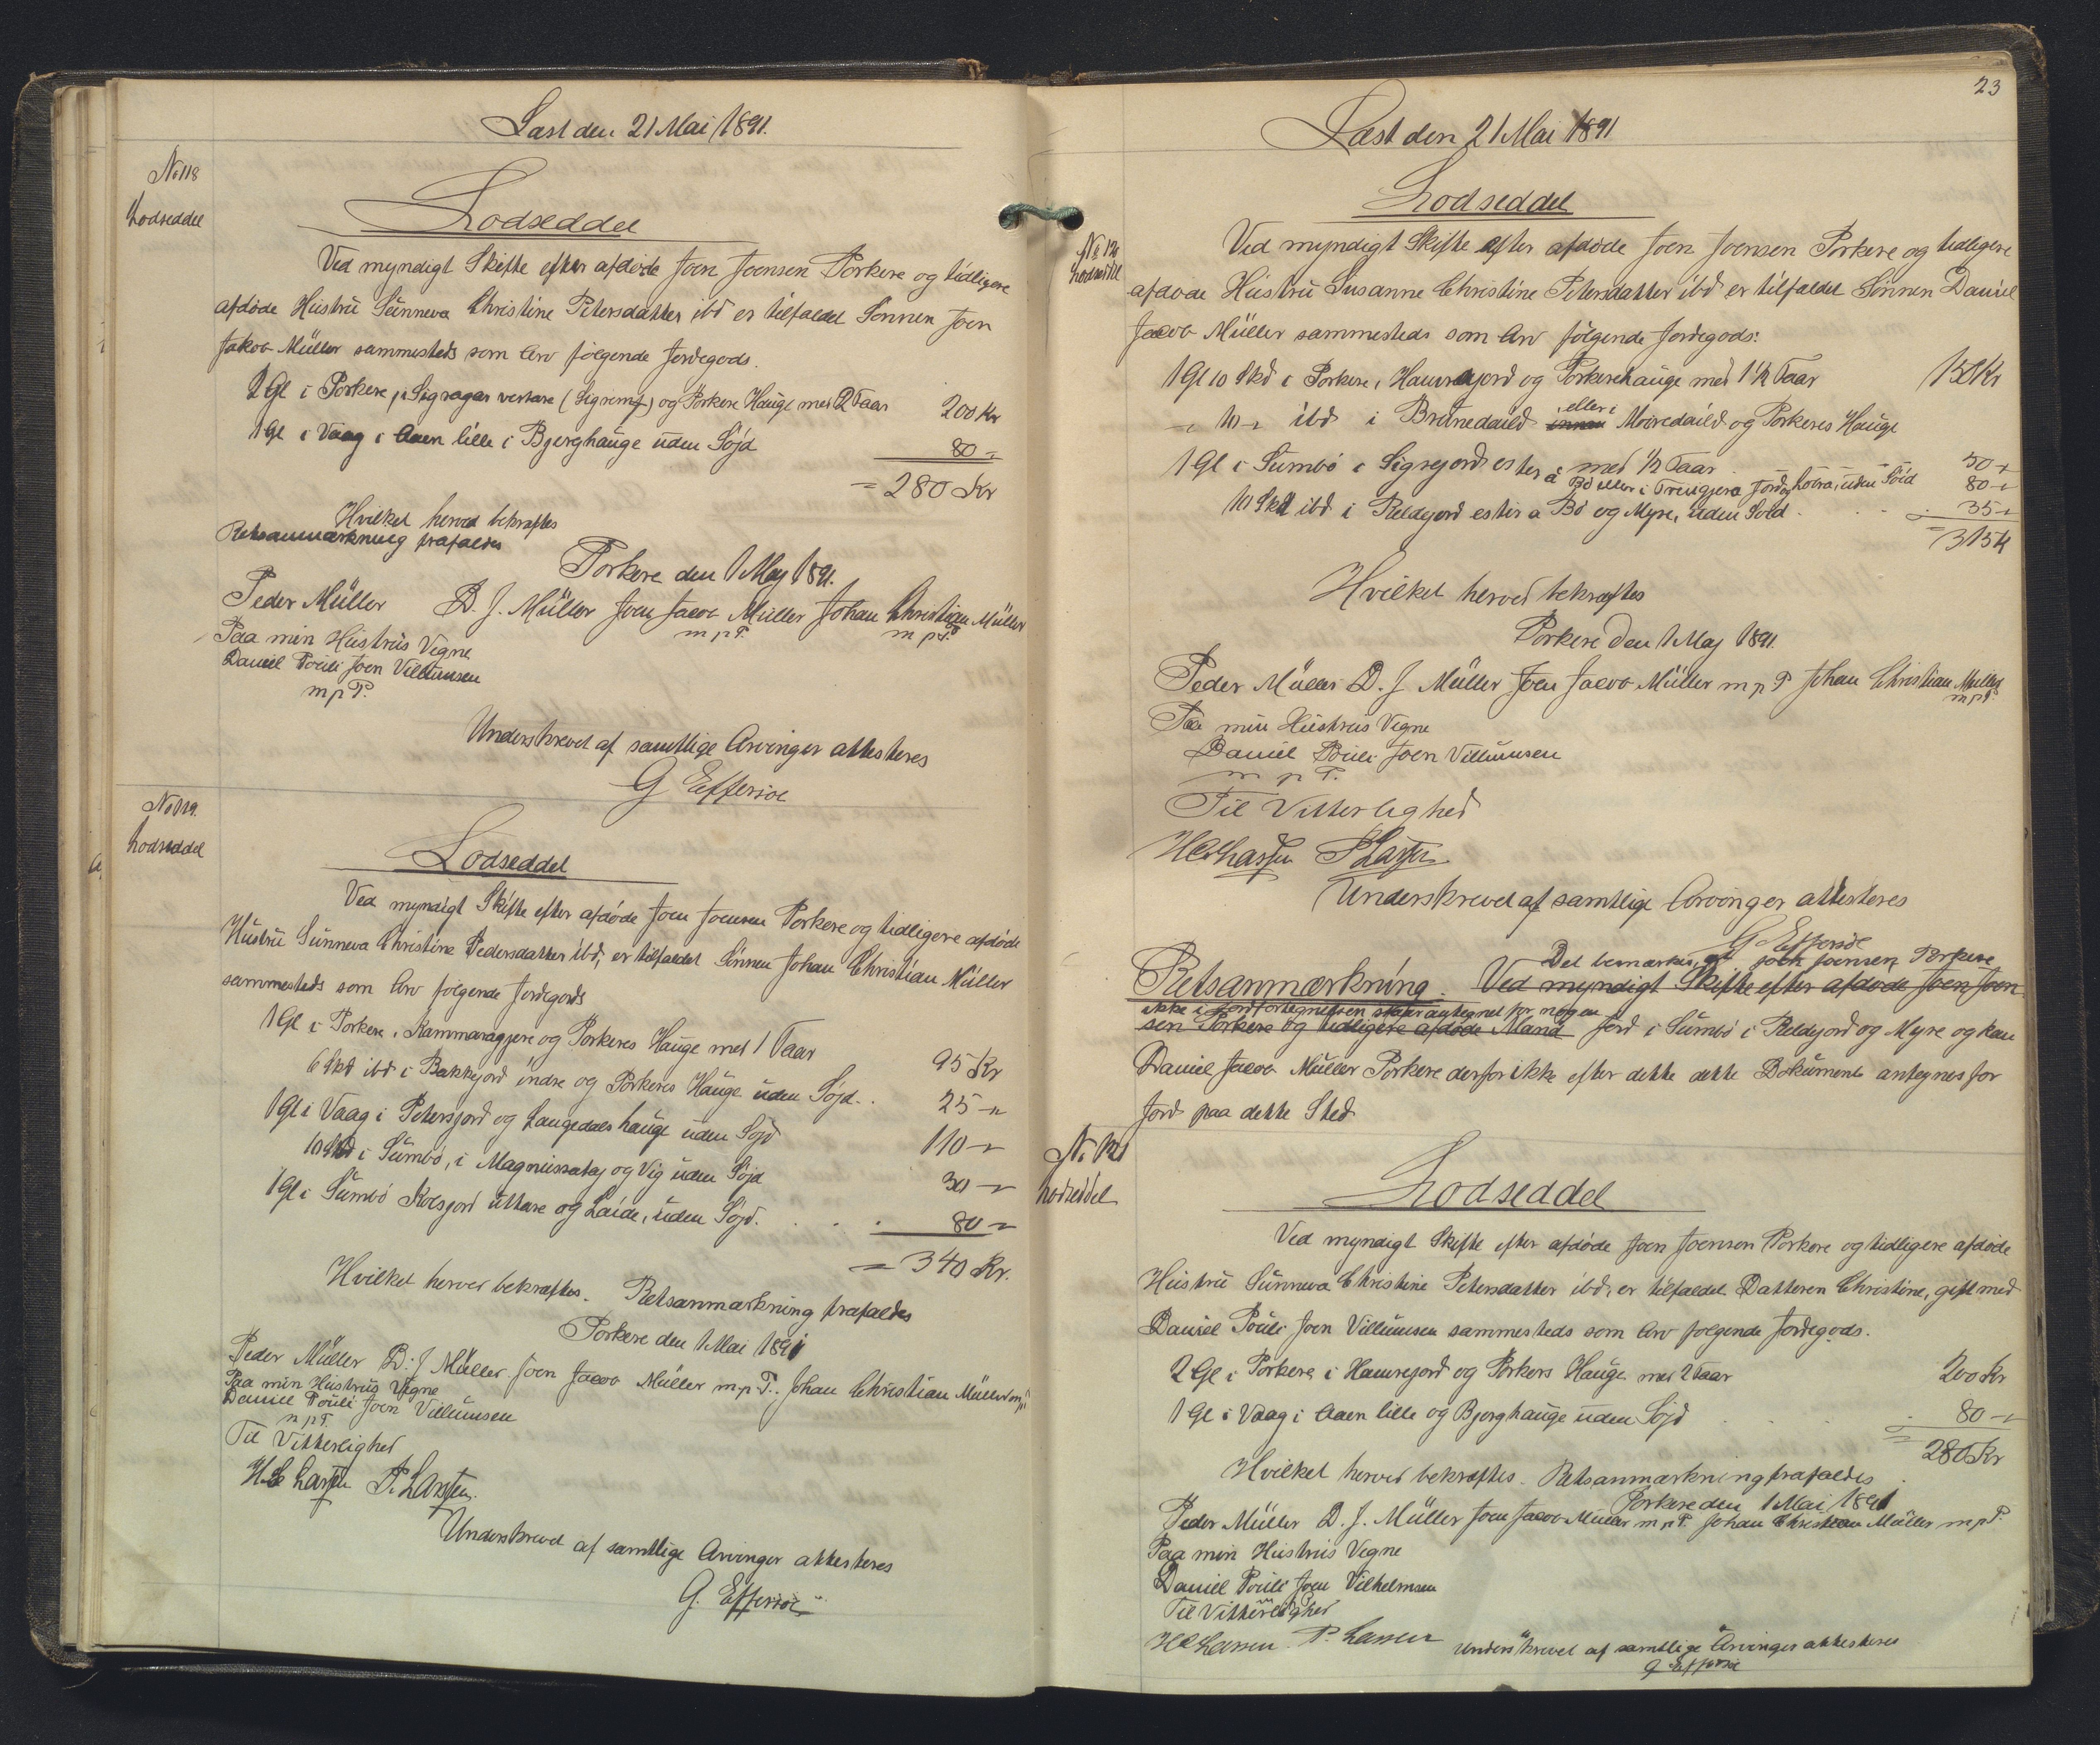 Læst den 21 Mai 1891.
No 118
Lodseddel
Lodseddel
Ved myndigt Skifte efter afdøde Joen Joensen Porkere og tidligere
afdøde Hustru Sunneva Christine Petersdatter ibd er tilfaldet Sønnen Joen
Jakob Müller sammesteds som Arv følgende Jordegods.
2 Gl i Porkere, i Sigragar vestare ( ) og Porkere Hauge med 2 Faar 200 Kr
1 Gl i Vaag i Aaen lille i Bjerghauge uden Søjd 80 "
= 280 Kr
Hvilket herved bekræftes
Retsanmærkning frafaldes
Porkere den 1 Maj 1891.
Peder Müller D. J. Müller Joen Jacob Müller Johan Christian Müller
m p P. m p P
Paa min Hustrus Vegne
Daniel Pouli Joen Villumsen
m p P.
Underskrevet af samtlige Arvinger attesteres
G Effersøe
No 119.
Lodseddel
Lodseddel
Ved myndigt Skifte efter afdøde Joen Joensen Porkere og tidligere afdøde
Hustru Sunneva Christine Pedersdatter ibd, er tilfaldet Sønnen Johan Christian Müller
sammesteds som Arv følgende Jordegods
1 Gl i Porkere, i Kammaragjere og Porkeres Hauge med 1 Faar 95 Kr
6 Skd ibd i Bakkejord indre og Porkeres Hauge uden Søjd.. 25 "
1 Gl i Vaag i Petersjord og Laugedals hauge uden Søjd 110 "
10 Skd i Sumbø, i Magnussataj og Vig uden Søjd 30 "
1 Gl i Sumbø Kolsjord uttare og Laide, uden Søjd. . . . 80 "
= 340 Kr.
Hvilket herved bekræftes. Retsanmærkning frafaldes
Porkere den 1 Mai 1891
Peder Müller D. J Müller Joen Jacob Müller m. p. P. Johan Christian Müller m p P
Paa min Hustrus Vegne
Daniel Pouli Joen Villumsen
m p P.
Til Vitterlighed
H C Larsen P. Larsen.
Underskrevet af samtlige Arvinger attesteres
G. Effersøe
23
Læst den 21 Mai 1891
No 120
Lodseddel
Lodseddel
Ved myndigt Skifte efter afdøde Joen Joensen Porkere og tidligere
afdøde Hustru Susanne Christine Petersdatter ibd er tilfaldet Sønnen Daniel
Jacob Müller sammesteds som Arv følgende Jordegods:
1 Gl 10 Skd i Porkere, i Hamrajord og Porkerehauge med 1 1/2 Faar 150 Kr
" 10 " ibd i Brunedaild innan eller i Moiredaild og Porkeres Hauge
med 1/2 Faar 50 "
1 Gl i Sumbø i Sigrejord ester á Bø eller i Treugjera Jord og , uden Søjd 80 "
10 Skd ibd i Reldejord ester a Bø og Myre, uden Søjd . . . 35 "
= 315 K
Hvilket herved bekræftes
Porkere den 1 Maj 1891.
Peder Müller D. J Müller Joen Jacob Müller m p P Johan Christian Müller
m p P.
Paa min Hustrus Vegne
Daniel Pouli Joen Villumsen
m p P.
Til Vitterlighed
H C Larsen P Larsen
Underskrevet af samtlige Arvinger attesteres
G Effersøe
Det bemærkes, at Joen Joensen Porkere
Retsanmærkning. Ved myndigt Skifte efter afdøde Joen Joen
ikke i Jordfortegnelsen staar antegnet for nogen
sen Porkere og tidligere afdøde Mand Jord i Sumbø i Reldejord og Myre og kan
Daniel Jacob Müller Porkere derfor ikke efter dette dette Dokument antegnes for
Jord paa dette Sted
No 121
Lodseddel
Lodseddel
Ved myndigt Skifte efter afdøde Joen Joensen Porkere og tidligere afdøde
Hustru Sunneva Christine Petersdatter ibd, er tilfaldet Datteren Christine, gift med
Daniel Pouli Joen Villumsen sammesteds som Arv følgende Jordegods.
2 Gl i Porkere i Hamrejord og Porkers Hauge med 2 Faar 200 Kr
1 Gl i Vaag i Aaen lille og Bjerghauge uden Søjd . . . 80 "
= 280 Kr
Hvilket herved bekræftes. Retsanmærkning frafaldes
Porkere den 1 Mai 1891
Peder Müller D. J. Müller Joen Jacob Müller m p P. Johan Christian Müller m p P.
Paa min Hustrus Vegne
Daniel Pouli Joen Vilhelmsen
m p P
Til Vitterlighed
H C Larsen P. Larsen Underskrevet af samtlige Arvinger attesteres
G Effersøe